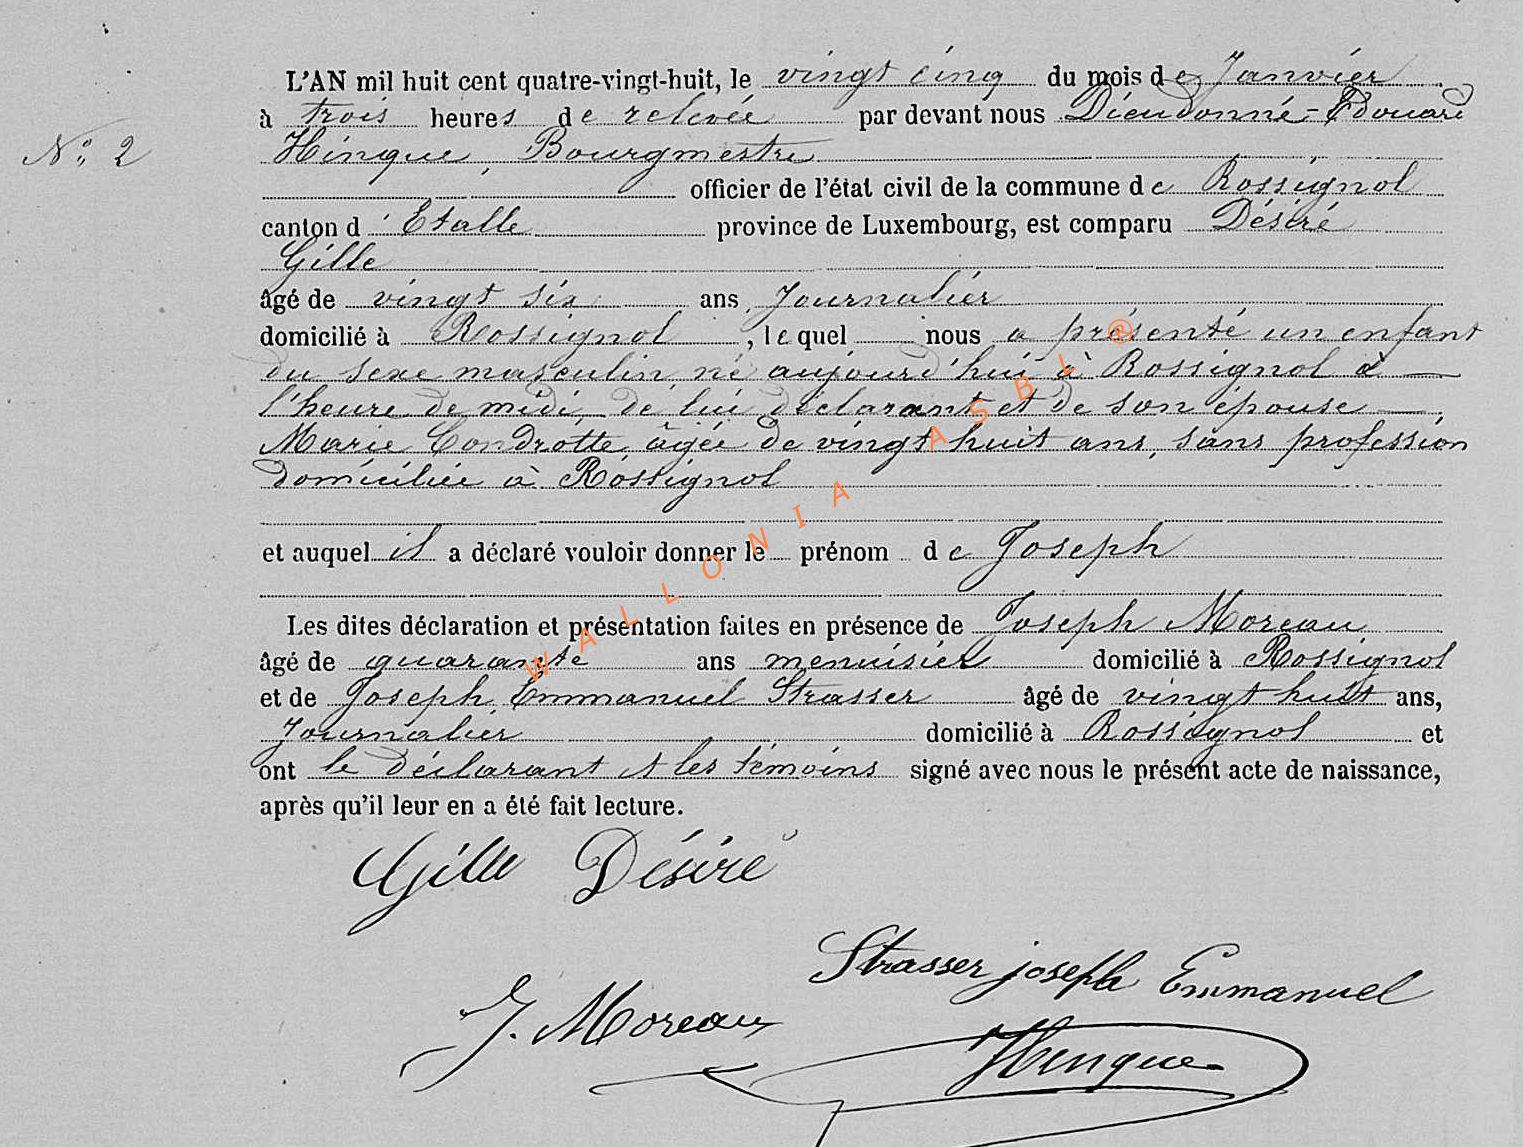 L'AN mil huit cent quatre-vingt-huit, le vingt cinq du mois de Janvier
à trois heures de relevée par devant nous Dieudonné-Edouard
Nº 2
Hinque, Bourgmestre
officier de l'état civil de la commune de Rossignol
canton d'Etalle province de Luxembourg, est comparu Désiré
Gille
âgé de vingt six ans, Journalier
domicilié à Rossignol, lequel nous a présenté un enfant
du sexe masculin, né aujourd'hui à Rossignol à —
l'heure de midi, de lui déclarant et de son épouse —
Marie Condrotte, âgée de vingt huit ans, sans profession
domiciliée à Rossignol
et auquel il a déclaré vouloir donner le prénom de Joseph
Les dites déclaration et présentation faites en présence de Joseph Moreau
âgé de quarante ans menuisier domicilié à Rossignol
et de Joseph Emmanuel Strasser âgé de vingt huit ans,
Journalier domicilié à Rossignol et
ont le déclarant et les témoins signé avec nous le présent acte de naissance,
après qu'il leur en a été fait lecture.
Gille Désiré
Strasser joseph Emmanuel
J. Moreau
Hinque
WALLONIA ASBL ®